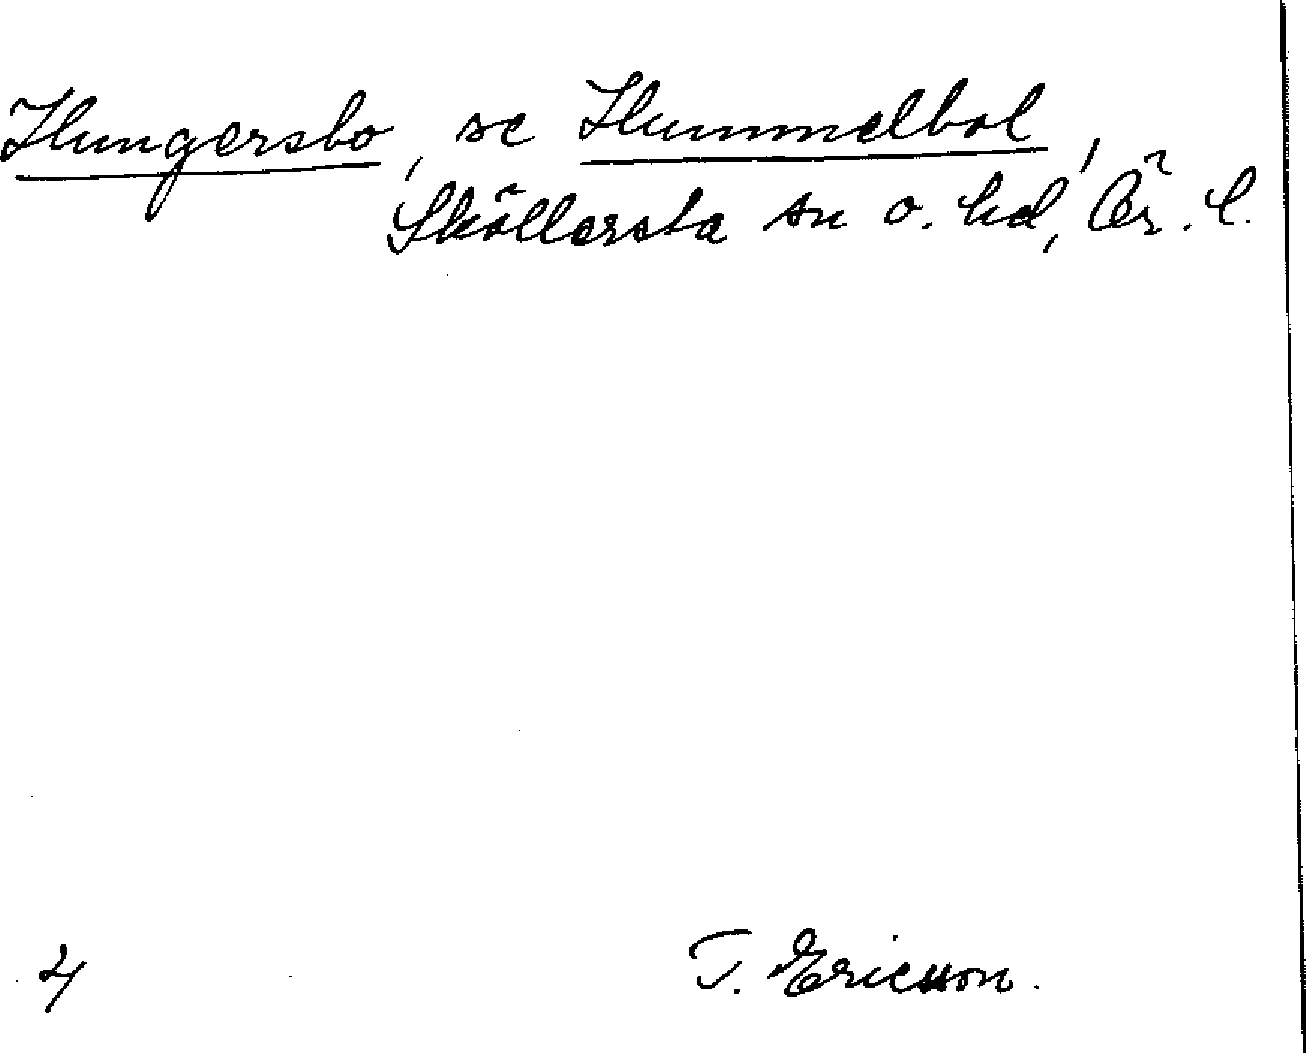 Hungersbo, se Hummelbol,
Sköllersta sn o. hd, Ör. l.
4
T. Ericsson.